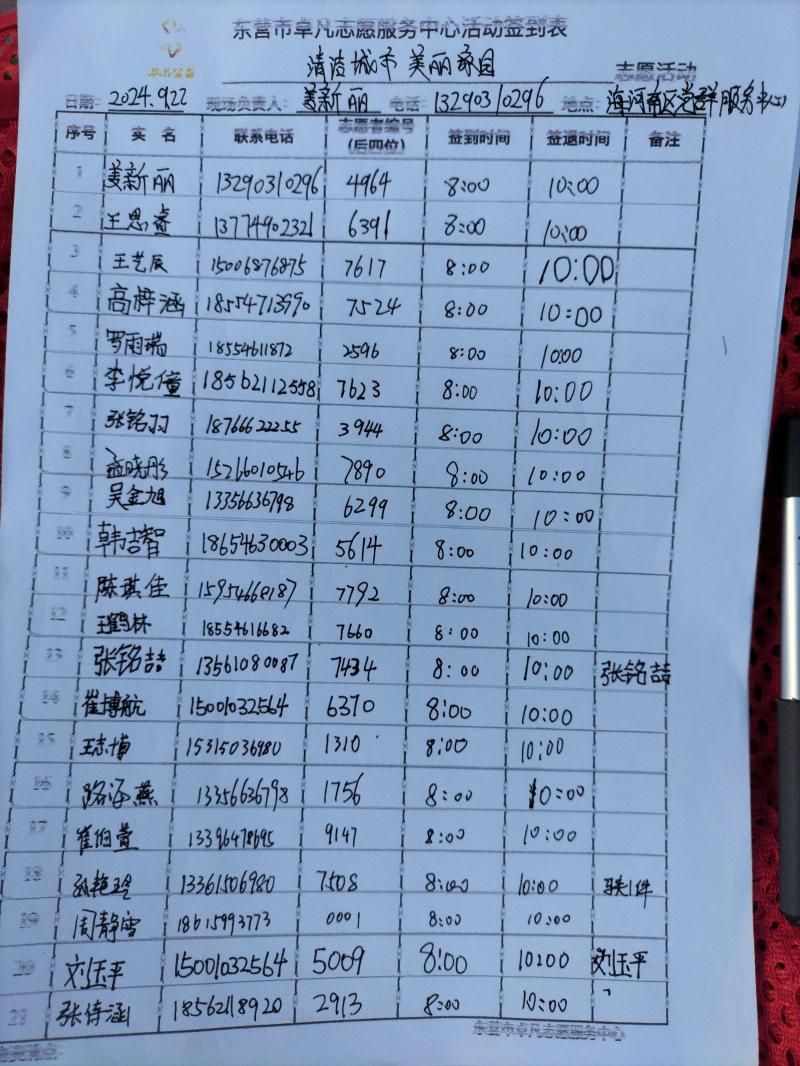 东营市卓凡志愿服务中心活动签到表
卓凡公益
清洁城市 美丽家园 志愿活动
日期: 2024.9.22 现场负责人: 姜新丽 电话: 13290310296 地点: 海河南区党群服务中心
序号 实名 联系电话 志愿者编号(后四位) 签到时间 签退时间 备注
1 姜新丽 13290310296 4964 8:00 10:00
2 王思睿 13774902321 6391 8:00 10:00
3 王艺辰 15006876875 7617 8:00 10:00
4 高梓涵 18554713990 7524 8:00 10:00
5 罗雨瑞 18554611872 2596 8:00 10:00
6 李悦僮 18562112558 7623 8:00 10:00
7 张铭羽 18766622255 3944 8:00 10:00
8 孟晓彤 15266010546 7890 8:00 10:00
9 吴金旭 13356636798 6299 8:00 10:00
10 韩吉智 18654630003 5614 8:00 10:00
11 陈琪佳 15954668187 7792 8:00 10:00
12 王鹤林 18554616682 7660 8:00 10:00
13 张铭喆 13561080087 7434 8:00 10:00 张铭喆
14 崔博航 15001032564 6370 8:00 10:00
15 王志博 15315036980 1310 8:00 10:00
16 路海燕 13356636798 1756 8:00 10:00
17 崔伯萱 13396478695 9147 8:00 10:00
18 孙艳玲 13361506980 7508 8:00 10:00
19 周静雪 18615993773 0001 8:00 10:00
20 刘玉平 15001032564 5009 8:00 10:00 刘玉平
21 张诗涵 18562118920 2913 8:00 10:00
东营市卓凡志愿服务中心